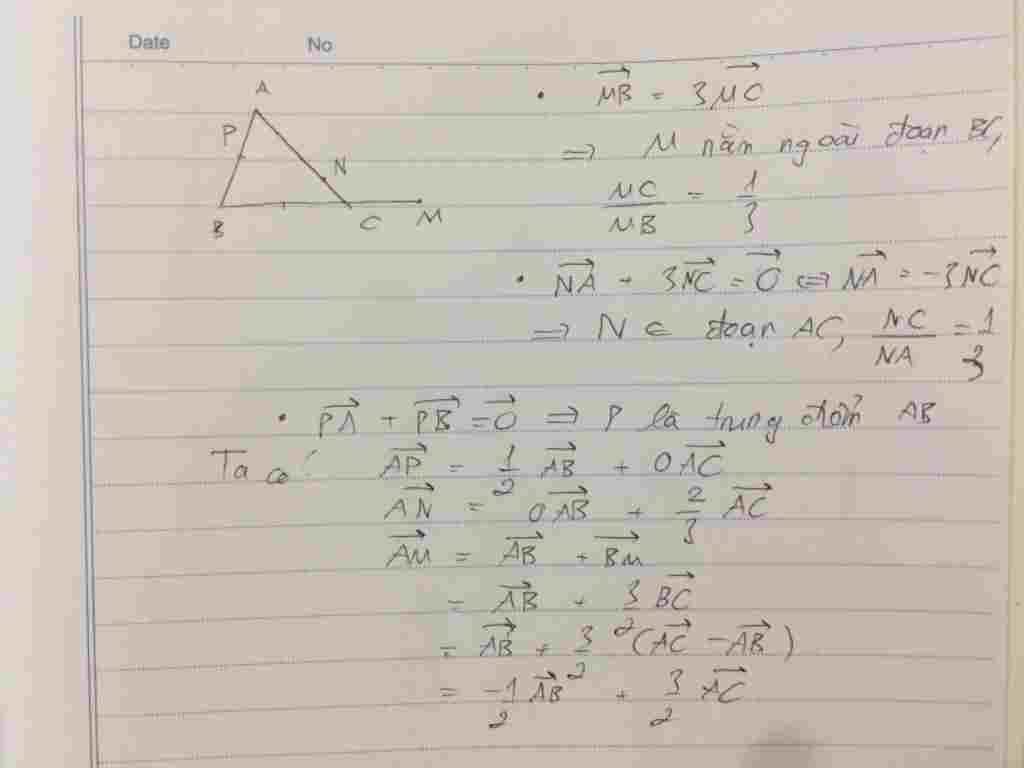 Date No
A
P
N
B C M
• $\overrightarrow{MB} = 3\overrightarrow{MC}$
⇒ M nằm ngoài đoạn BC,
$\frac{MC}{MB} = \frac{1}{3}$
• $\overrightarrow{NA} + 3\overrightarrow{NC} = \overrightarrow{0} ⇔ \overrightarrow{NA} = -3\overrightarrow{NC}$
⇒ N ∈ đoạn AC, $\frac{NC}{NA} = \frac{1}{3}$
• $\overrightarrow{PA} + \overrightarrow{PB} = \overrightarrow{0}$ ⇒ P là trung điểm AB
Ta có: $\overrightarrow{AP} = \frac{1}{2}\overrightarrow{AB} + 0\overrightarrow{AC}$
$\overrightarrow{AN} = 0\overrightarrow{AB} + \frac{2}{3}\overrightarrow{AC}$
$\overrightarrow{AM} = \overrightarrow{AB} + \overrightarrow{BM}$
$= \overrightarrow{AB} + \frac{3}{2}\overrightarrow{BC}$
$= \overrightarrow{AB} + \frac{3}{2}(\overrightarrow{AC} - \overrightarrow{AB})$
$= \frac{-1}{2}\overrightarrow{AB} + \frac{3}{2}\overrightarrow{AC}$